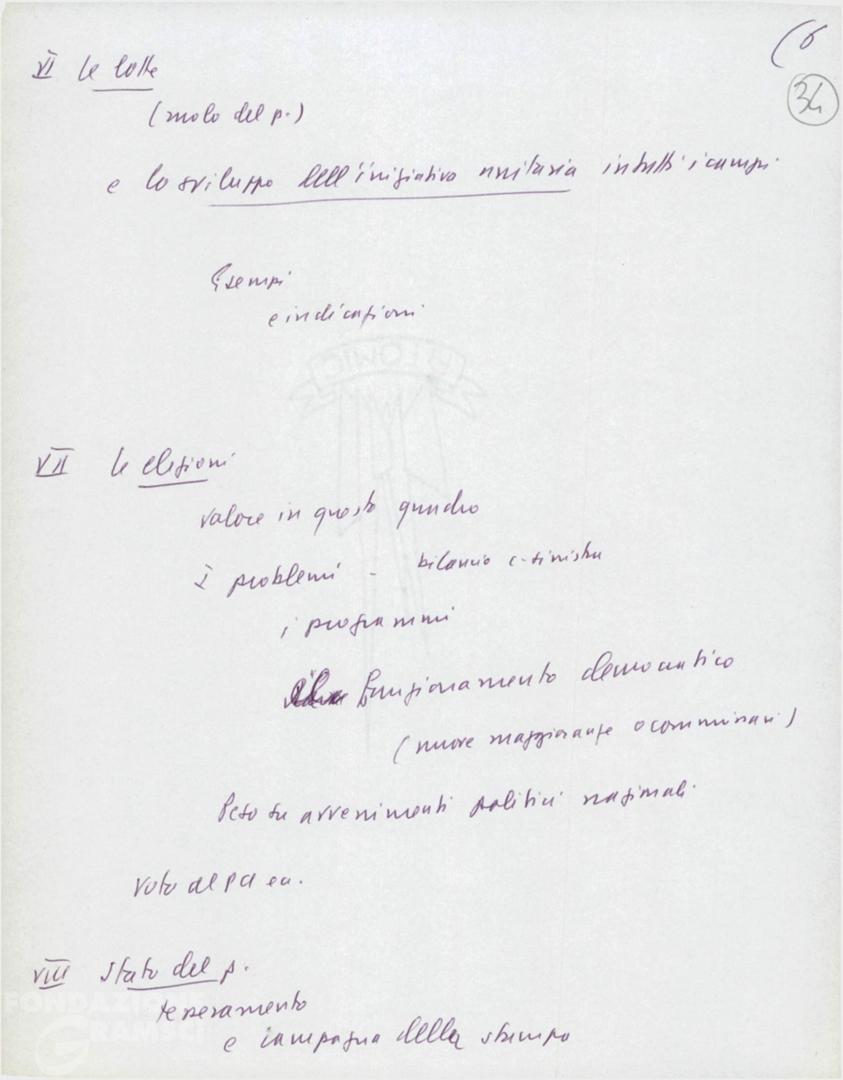 (6
34
VI le lotte
(ruolo del p.)
e lo sviluppo dell'iniziativa unitaria in tutti i campi
Esempi
e indicazioni
VII le elezioni
valore in questo quadro
I problemi - bilancio c-sinistra
i programmi
funzionamento democratico
(nuove maggioranze o commissari)
Peso su avvenimenti politici nazionali
Voto al PCI ecc.
VIII Stato del p.
tesseramento
e campagna della stampa
FONDAZIONE
GRAMSCI